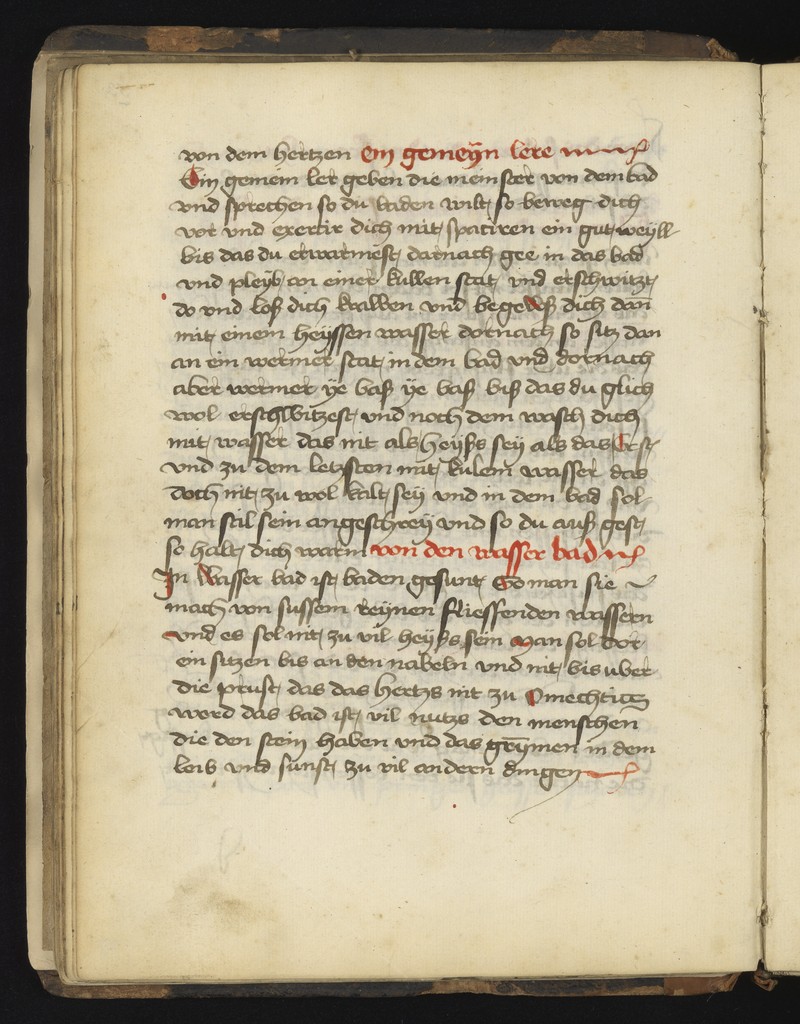 von dem hertzen Ein gemeyn lere
Ein gemein ler geben die meinster von dem bad
vnd sprechen so du baden wilt so beweg dich
vor vnd exercir dich mit spaciren ein gut weyll
bis das du erwarmest darnach gee in das bad
vnd pleyb an einer kullen stat vnd erschwitzt
do vnd loß dich krawen vnd begewß dich dan
mit einem heyssen wasser dornach so sitz dan
an ein wermer stat in dem bad vnd dornach
aber wermer ye baß ye baß biß das du glich
wol erschwitzest vnd noch dem wasch dich
mit wasser das nit als heyßs sey als das Erst
vnd zu dem letzsten mit kulem wasser das
doch nit zu wol kalt sey vnd in dem bad sol
man stil sein an geschrey vnd so du auß gest
so halt dich warm von den wasser bad
In Wasser bad ist baden gesunt So man sie
mach von sussem reynen fliessenden wassern
vnd es sol nit zu vil heyßs sein Man sol dor
ein sitzen bis an den nabeln vnd nit bis vber
die prust das das hertzs nit zu Omechtig
werd das bad ist vil nutzs den menschen
die den stein haben vnd das grymen in dem
leib vnd sunst zu vil andern dingen